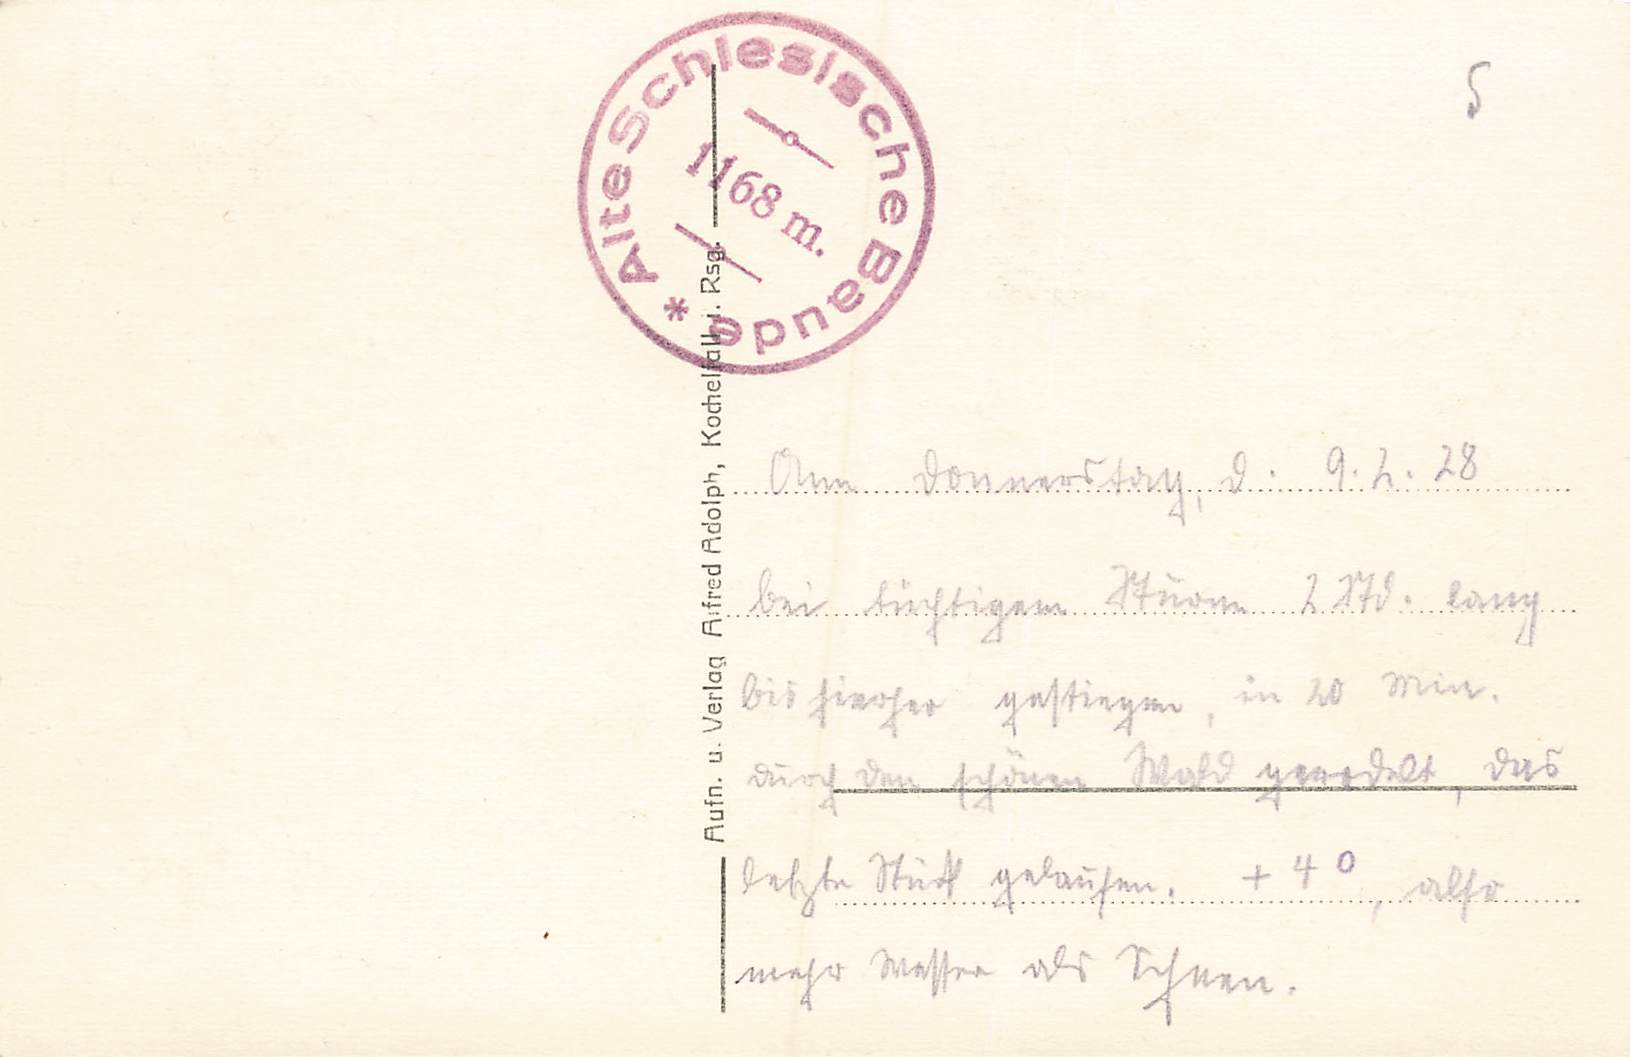 Alte Schlesische Baude *
1168 m.
5
Aufn. u. Verlag Alfred Adolph, Kochelfall i. Rsg.
Am Donnerstag, d. 9.2.28
bei tüchtigem Sturm 2 Std. lang
bis hierher gestiegen, in 20 Min.
durch den schönen Wald gerodelt, das
letzte Stück gelaufen. + 4 °, also
mehr Wasser als Schnee.